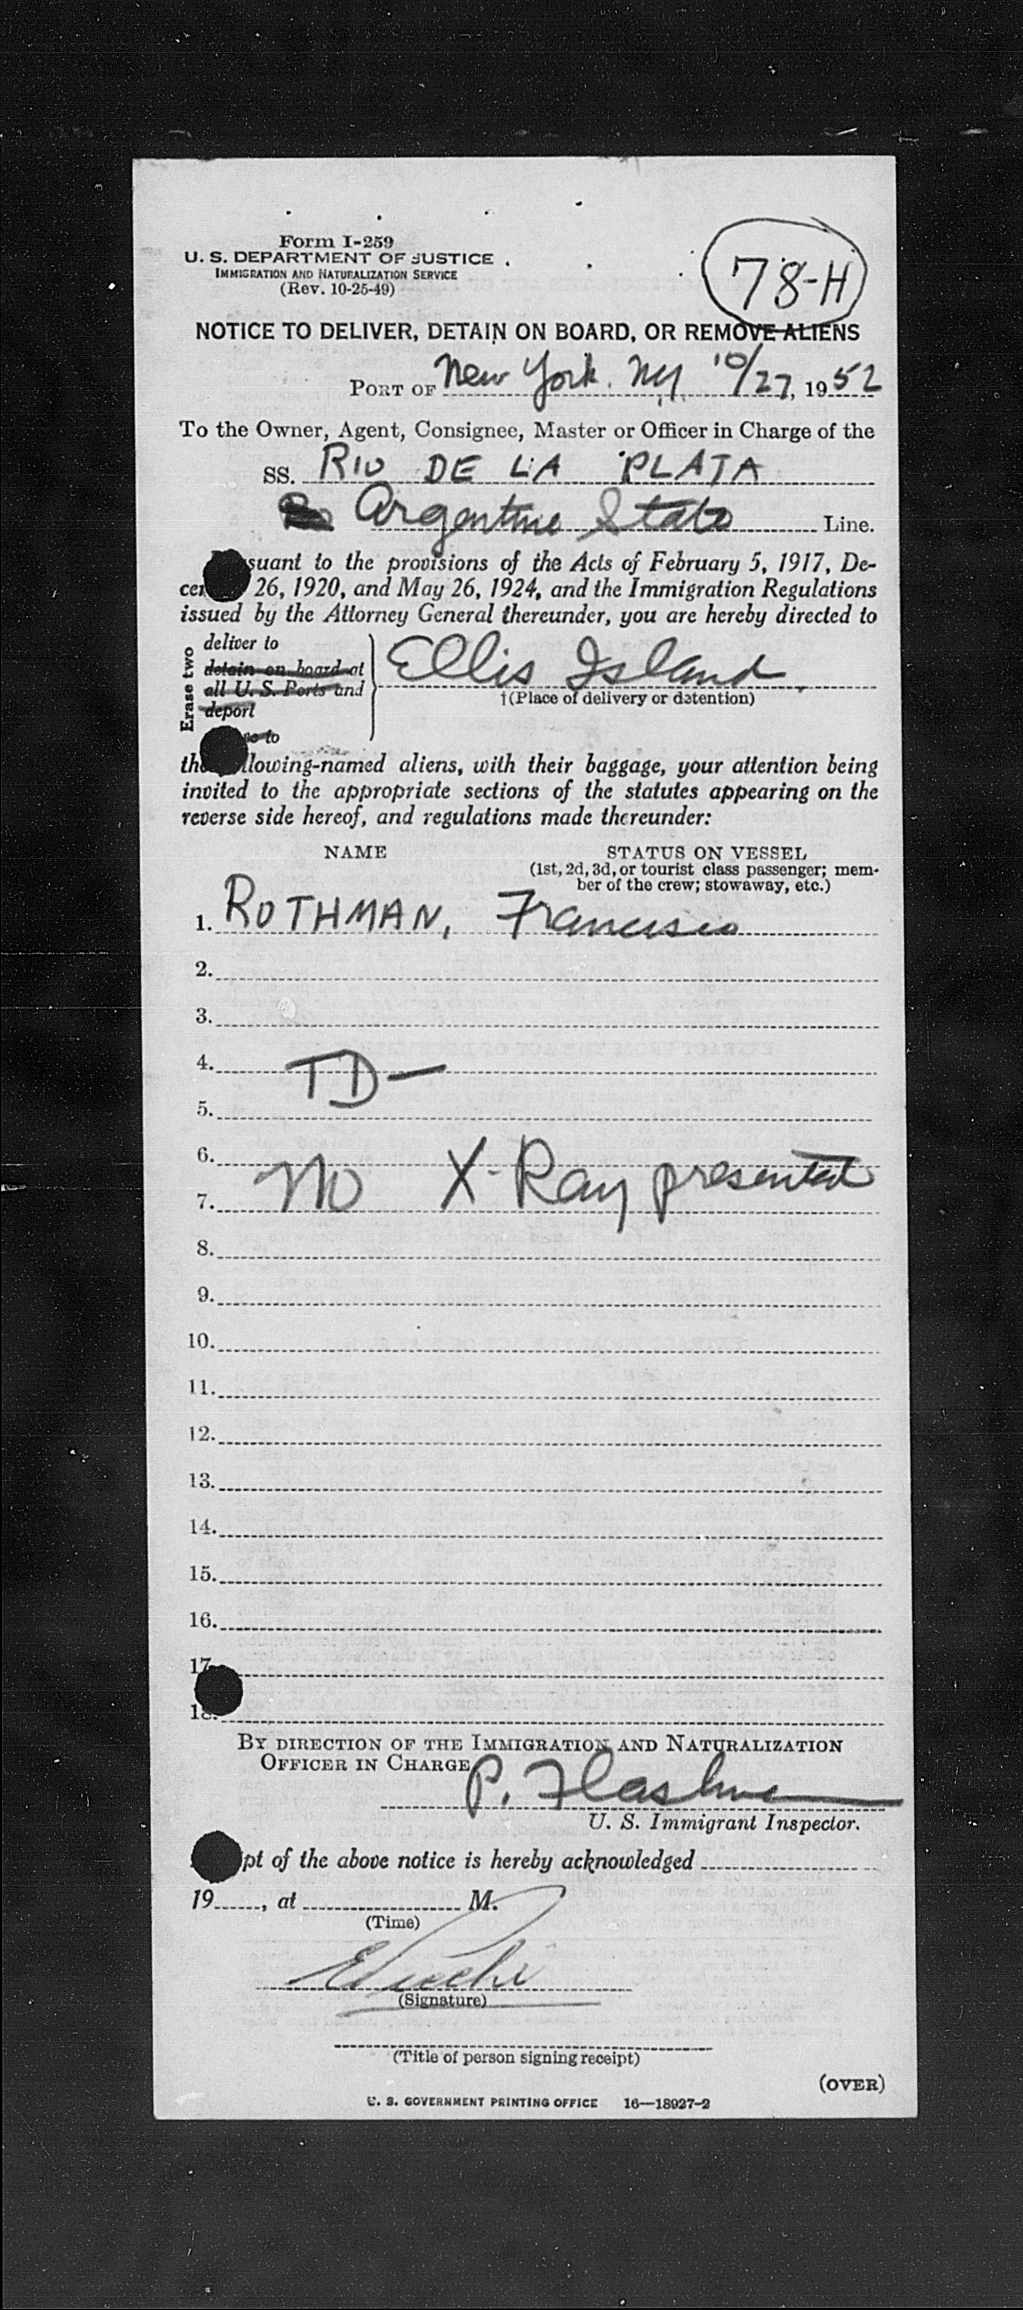 Form I-259
U. S. DEPARTMENT OF JUSTICE
IMMIGRATION AND NATURALIZATION SERVICE
(Rev. 10-25-49)
78-H
NOTICE TO DELIVER, DETAIN ON BOARD, OR REMOVE ALIENS
PORT OF New York. NY. 10/27, 1952
To the Owner, Agent, Consignee, Master or Officer in Charge of the
SS. RIO DE LA PLATA
Argentine State Line.
suant to the provisions of the Acts of February 5, 1917, De-
cem 26, 1920, and May 26, 1924, and the Immigration Regulations
issued by the Attorney General thereunder, you are hereby directed to
Erase two
deliver to
detain on board at
all U. S. Ports and
deport
to
Ellis Island
†(Place of delivery or detention)
the lowing-named aliens, with their baggage, your attention being
invited to the appropriate sections of the statutes appearing on the
reverse side hereof, and regulations made thereunder:
NAME STATUS ON VESSEL
(1st, 2d, 3d, or tourist class passenger; mem-
ber of the crew; stowaway, etc.)
1. ROTHMAN, Francisco
2.
3.
4. TD—
5.
6.
7. No X-Ray presented
8.
9.
10.
11.
12.
13.
14.
15.
16.
17.
18.
BY DIRECTION OF THE IMMIGRATION AND NATURALIZATION
OFFICER IN CHARGE
P.
U. S. Immigrant Inspector.
pt of the above notice is hereby acknowledged
19 , at M.
(Time)
(Signature)
(Title of person signing receipt)
(OVER)
U. S. GOVERNMENT PRINTING OFFICE 16—18927-2